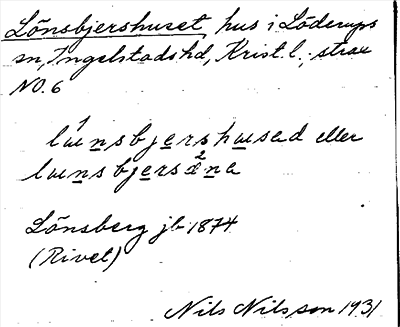 Lönsbjershuset, hus i Löderups
sn, Ingelstads hd, Krist. l.; strax
NO. 6
lœnsbjershœsed eller
lœnsbjersana
Lönsberg jb 1874
(Rivet)
Nils Nilsson 1931